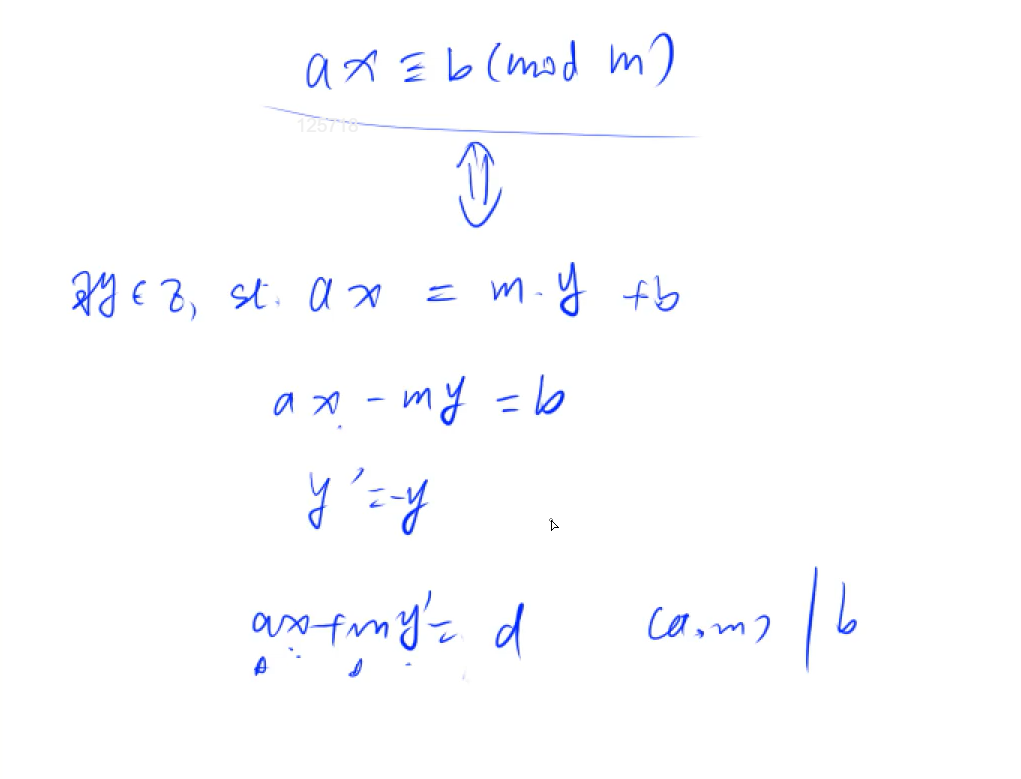 ax ≡ b (mod m)
125718
∃y ∈ Z, st. ax = m·y + b
ax - my = b
y' = -y
ax + my' = d (a, m) | b